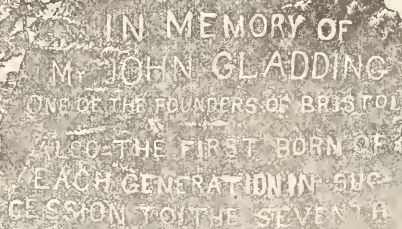 IN MEMORY OF
Mr JOHN GLADDING
ONE OF THE FOUNDERS OF BRISTOL
ALSO THE FIRST BORN OF
EACH GENERATION IN SUC-
CESSION TO THE SEVENTH